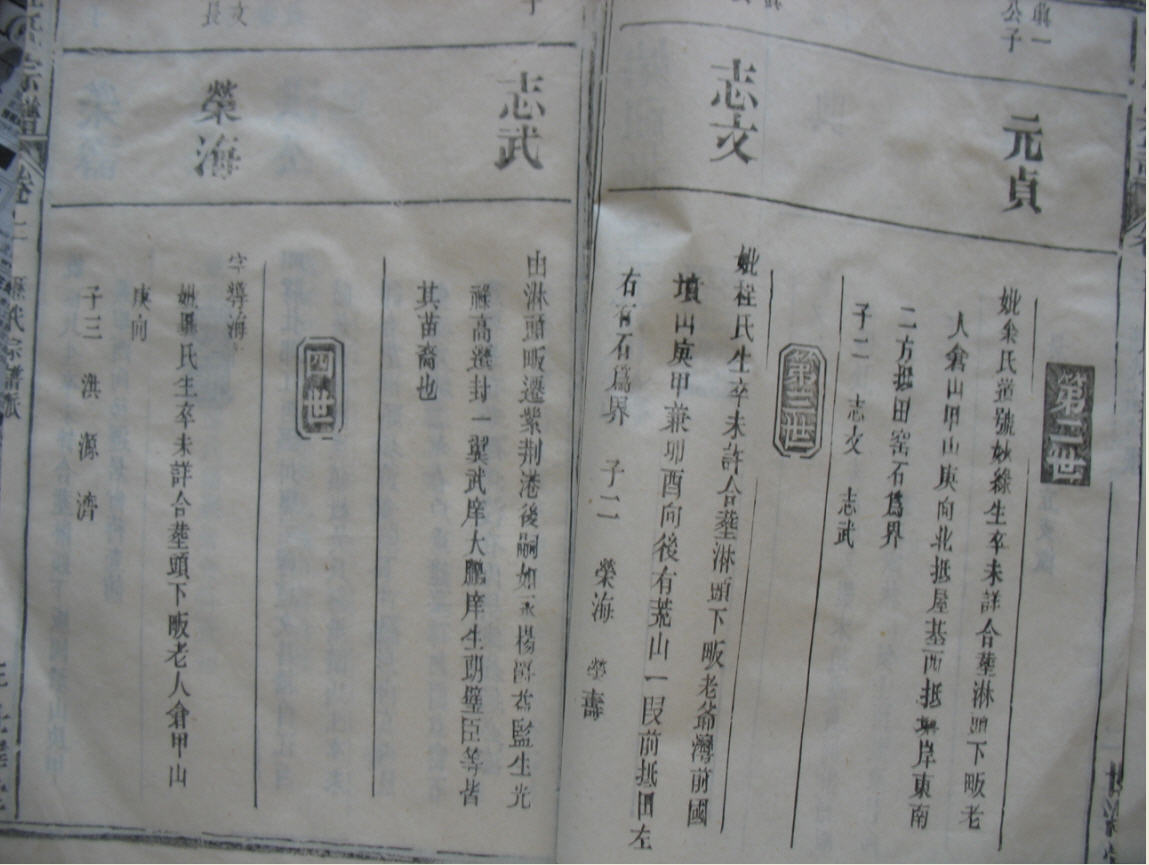 第二世
元貞
妣余氏道號妙緣生卒未詳合塟淋頭下畈老
人倉山甲山庚向北抵屋基西抵岸東南
二方抵田窑石爲界
子二 志文 志武
第三世
志文
妣桂氏生卒未詳合塟淋頭下畈老爺灣前國
墳山庚甲兼卯酉向後有荒山一叚前抵田左
右有石爲界 子二 榮海 榮壽
志武
由淋頭畈遷紫荆港後嗣如永楊爵監生光
祿高選封一翼武庠大鵬庠生朝璧臣等皆
其苗裔也
四世
榮海
字導海
妣畢氏生卒未詳合塟頭下畈老人倉甲山
庚向
子三 淇 源 濟
宗譜 卷二 歷代宗譜派